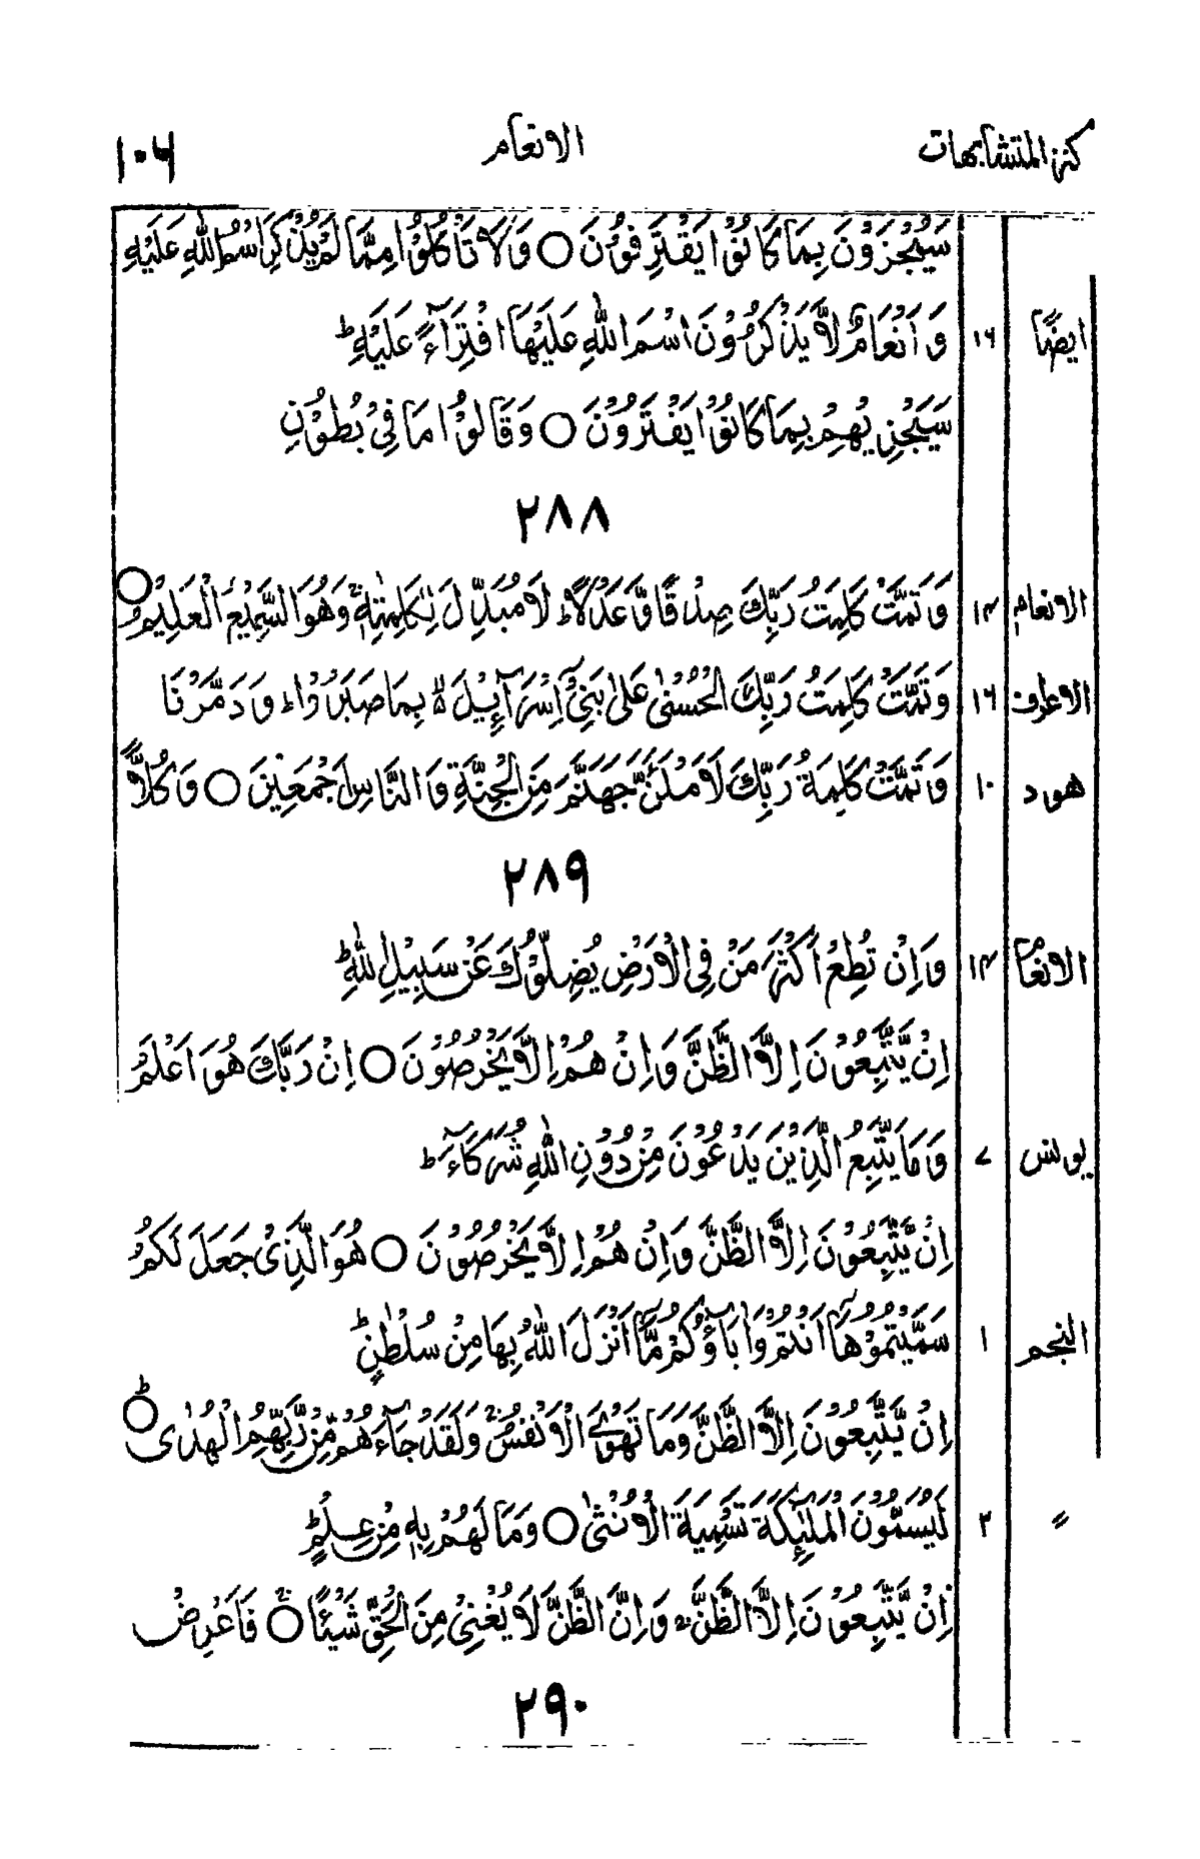 كنز المتشابهات الانعام ١٠٦
سَيُجْزَوْنَ بِمَا كَانُوْا يَقْتَرِفُوْنَ ○ وَلَا تَاْكُلُوْا مِمَّا لَمْ يُذْكَرِ اسْمُ اللّٰهِ عَلَيْهِ
ايضًا ١٦ وَ اَنْعَامٌ لَّا يَذْكُرُوْنَ اسْمَ اللّٰهِ عَلَيْهَا افْتِرَآءً عَلَيْهِ ؕ
سَيَجْزِيْهِمْ بِمَا كَانُوْا يَفْتَرُوْنَ ○ وَقَالُوْا مَا فِىْ بُطُوْنِ
٢٨٨
الانعام ١٤ وَتَمَّتْ كَلِمَتُ رَبِّكَ صِدْقًا وَّعَدْلًا ؕ لَا مُبَدِّلَ لِكَلِمٰتِهٖ ۚ وَهُوَ السَّمِيْعُ الْعَلِيْمُ ○
الاعراف ١٦ وَتَمَّتْ كَلِمَتُ رَبِّكَ الْحُسْنٰى عَلٰى بَنِىْۤ اِسْرَآءِيْلَ ۙ بِمَا صَبَرُوْا ؕ وَدَمَّرْنَا
هود ١٠ وَتَمَّتْ كَلِمَةُ رَبِّكَ لَاَمْلَئَنَّ جَهَنَّمَ مِنَ الْجِنَّةِ وَالنَّاسِ اَجْمَعِيْنَ ○ وَكُلًّا
٢٨٩
الانعام ١٤ وَاِنْ تُطِعْ اَكْثَرَ مَنْ فِى الْاَرْضِ يُضِلُّوْكَ عَنْ سَبِيْلِ اللّٰهِ ؕ
اِنْ يَّتَّبِعُوْنَ اِلَّا الظَّنَّ وَاِنْ هُمْ اِلَّا يَخْرُصُوْنَ ○ اِنَّ رَبَّكَ هُوَ اَعْلَمُ
يونس ٧ وَمَا يَتَّبِعُ الَّذِيْنَ يَدْعُوْنَ مِنْ دُوْنِ اللّٰهِ شُرَكَآءَ ؕ
اِنْ يَّتَّبِعُوْنَ اِلَّا الظَّنَّ وَاِنْ هُمْ اِلَّا يَخْرُصُوْنَ ○ هُوَ الَّذِىْ جَعَلَ لَكُمُ
النجم ١ سَمَّيْتُمُوْهَاۤ اَنْتُمْ وَاٰبَآؤُكُمْ مَّاۤ اَنْزَلَ اللّٰهُ بِهَا مِنْ سُلْطٰنٍ ؕ
اِنْ يَّتَّبِعُوْنَ اِلَّا الظَّنَّ وَمَا تَهْوَى الْاَنْفُسُ ۚ وَلَقَدْ جَآءَهُمْ مِّنْ رَّبِّهِمُ الْهُدٰى ○ ؕ
〃 ٢ لَيُسَمُّوْنَ الْمَلٰٓئِكَةَ تَسْمِيَةَ الْاُنْثٰى ○ وَمَا لَهُمْ بِهٖ مِنْ عِلْمٍ ؕ
اِنْ يَّتَّبِعُوْنَ اِلَّا الظَّنَّ ۚ وَاِنَّ الظَّنَّ لَا يُغْنِىْ مِنَ الْحَقِّ شَيْئًا ○ ۚ فَاَعْرِضْ
٢٩٠